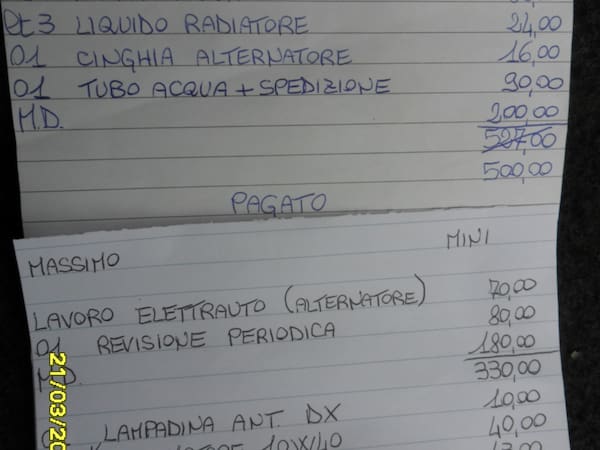 lt 3 LIQUIDO RADIATORE 24,00
01 CINGHIA ALTERNATORE 16,00
01 TUBO ACQUA + SPEDIZIONE 90,00
M.D. 200,00
527,00
500,00
PAGATO
MASSIMO MINI
LAVORO ELETTRAUTO (ALTERNATORE) 70,00
01 REVISIONE PERIODICA 80,00
M.D. 180,00
330,00
LAMPADINA ANT. DX 10,00
10W/40 40,00
21/03/20